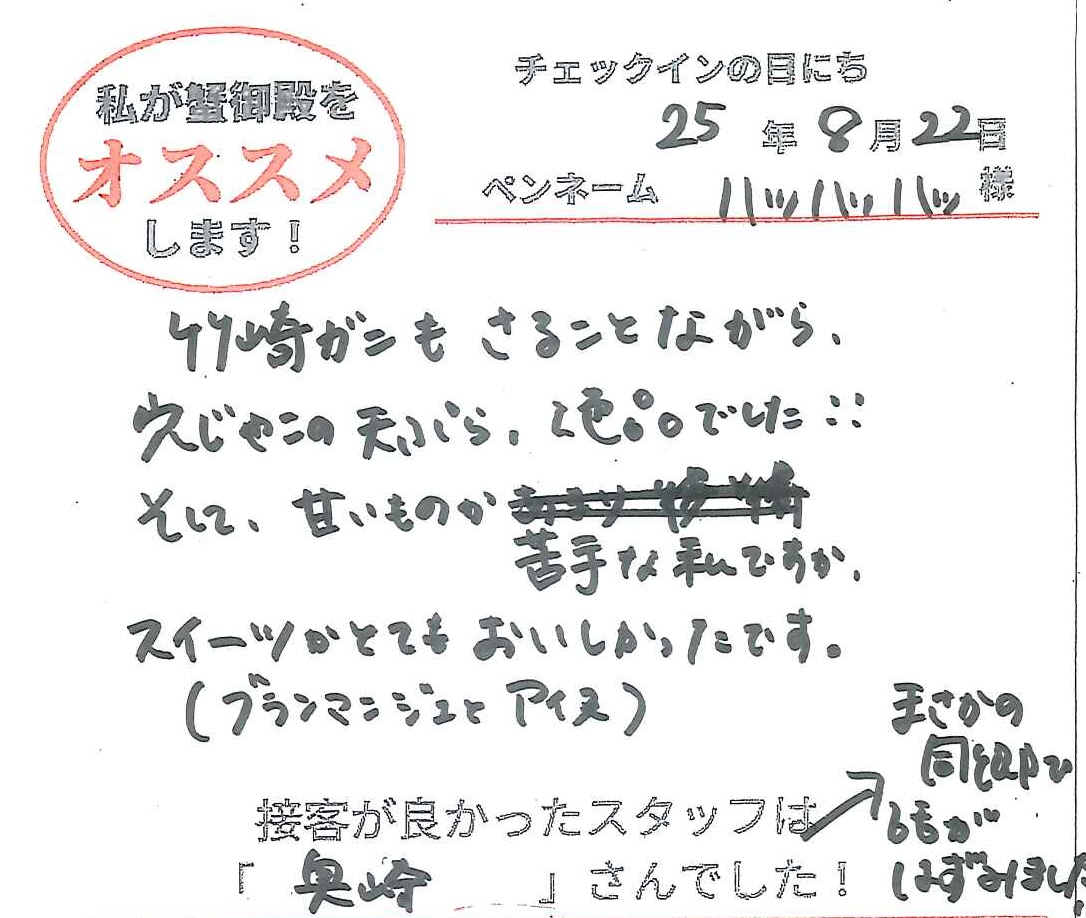 私が蟹御殿を
オススメ
します！
チェックインの日にち
25年8月22日
ペンネーム ハッハッハッ様
竹崎ガニもさることながら、
穴じゃこの天ぷら、絶品でした
そして、甘いものが
苦手な私ですが、
スイーツがとてもおいしかったです。
(ブランマンジェとアイス)
接客が良かったスタッフは
「奥崎」さんでした！
まさかの
同郷で
はずみました